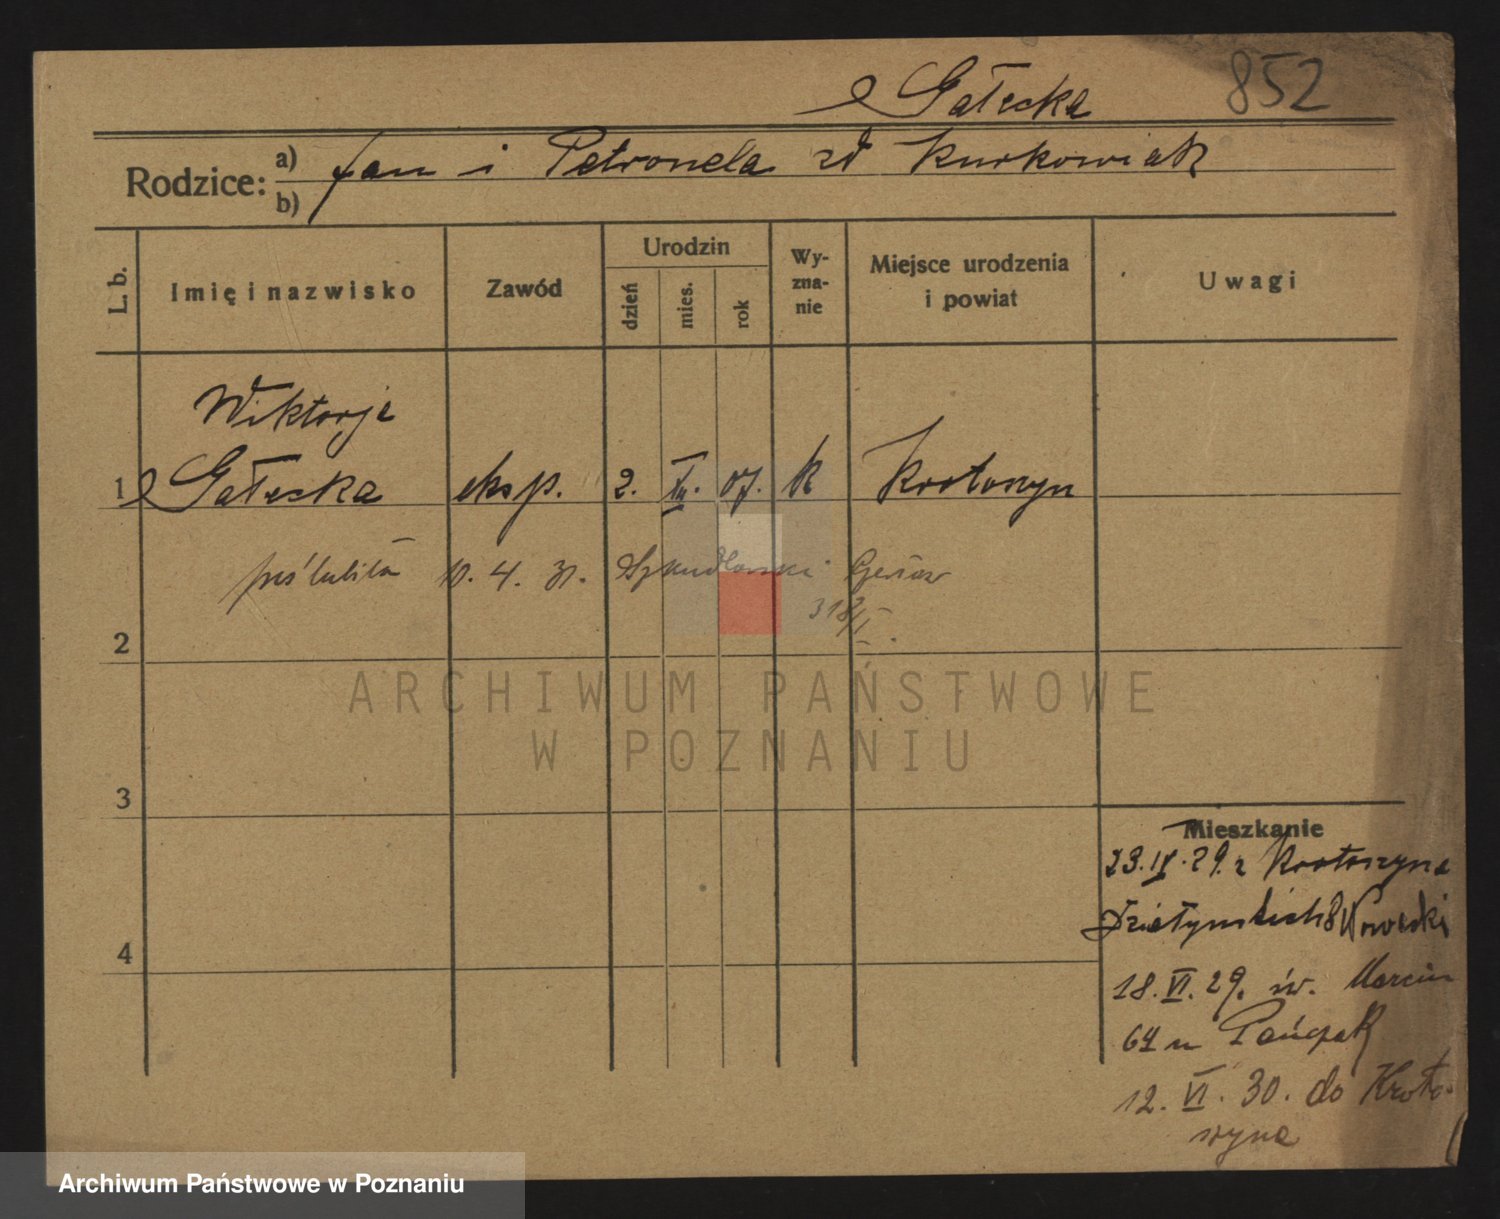 Gałecka 852
Rodzice: a) Jan i Petronela zd Kurkowiak
b)
L. b. Imię i nazwisko Zawód Urodzin dzień mies. rok Wyznanie Miejsce urodzenia i powiat Uwagi
Wiktorja
1 Gałecka eksp. 2. 07. k Krotoszyn
poślubiła 10. 4. 31.
318/I.
2
ARCHIWUM PAŃSTWOWE
W POZNANIU
3
4
Mieszkanie
23.IV.29. z Krotoszyna
Działyńskich 8 Nowacki
18.VI.29. św. Marcin
64 u
12.VI.30. do Kroto-
szyna
Archiwum Państwowe w Poznaniu